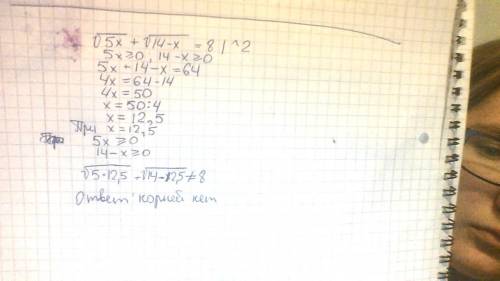 √5x + √14-x = 8 | ^2
5x ≥ 0, 14-x ≥ 0
5x + 14 - x = 64
4x = 64 - 14
4x = 50
x = 50 : 4
x = 12,5
При x = 12,5
5x ≥ 0
14-x ≥ 0
√5·12,5 - √14-12,5 ≠ 8
Ответ: корней нет